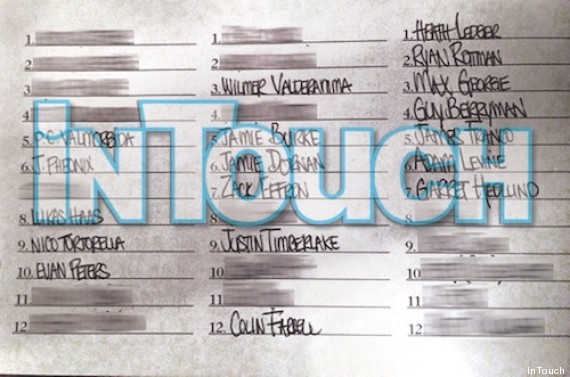 1.
2.
3.
4.
5. P.C. VALMORBIDA
6. J. PHEONIX
8. LUKAS HAAS
9. NICO TORTORELLA
10. EVAN PETERS
11
12
1.
2.
3. WILMER VALDERAMMA
4
5. JAMIE BURKE
6. JAMIE DORNAN
7. ZACK EFFRON
8
9. JUSTIN TIMBERLAKE
10.
11
12 COLIN FARRELL
1. HEATH LEDGER
2. RYAN ROTTMAN
3. MAX GEORGE
4. GUY BERRYMAN
5. JAMES FRANCO
6. ADAM LEVINE
7. GARRET HEDLUND
8
9.
10
11
12
InTouch
InTouch